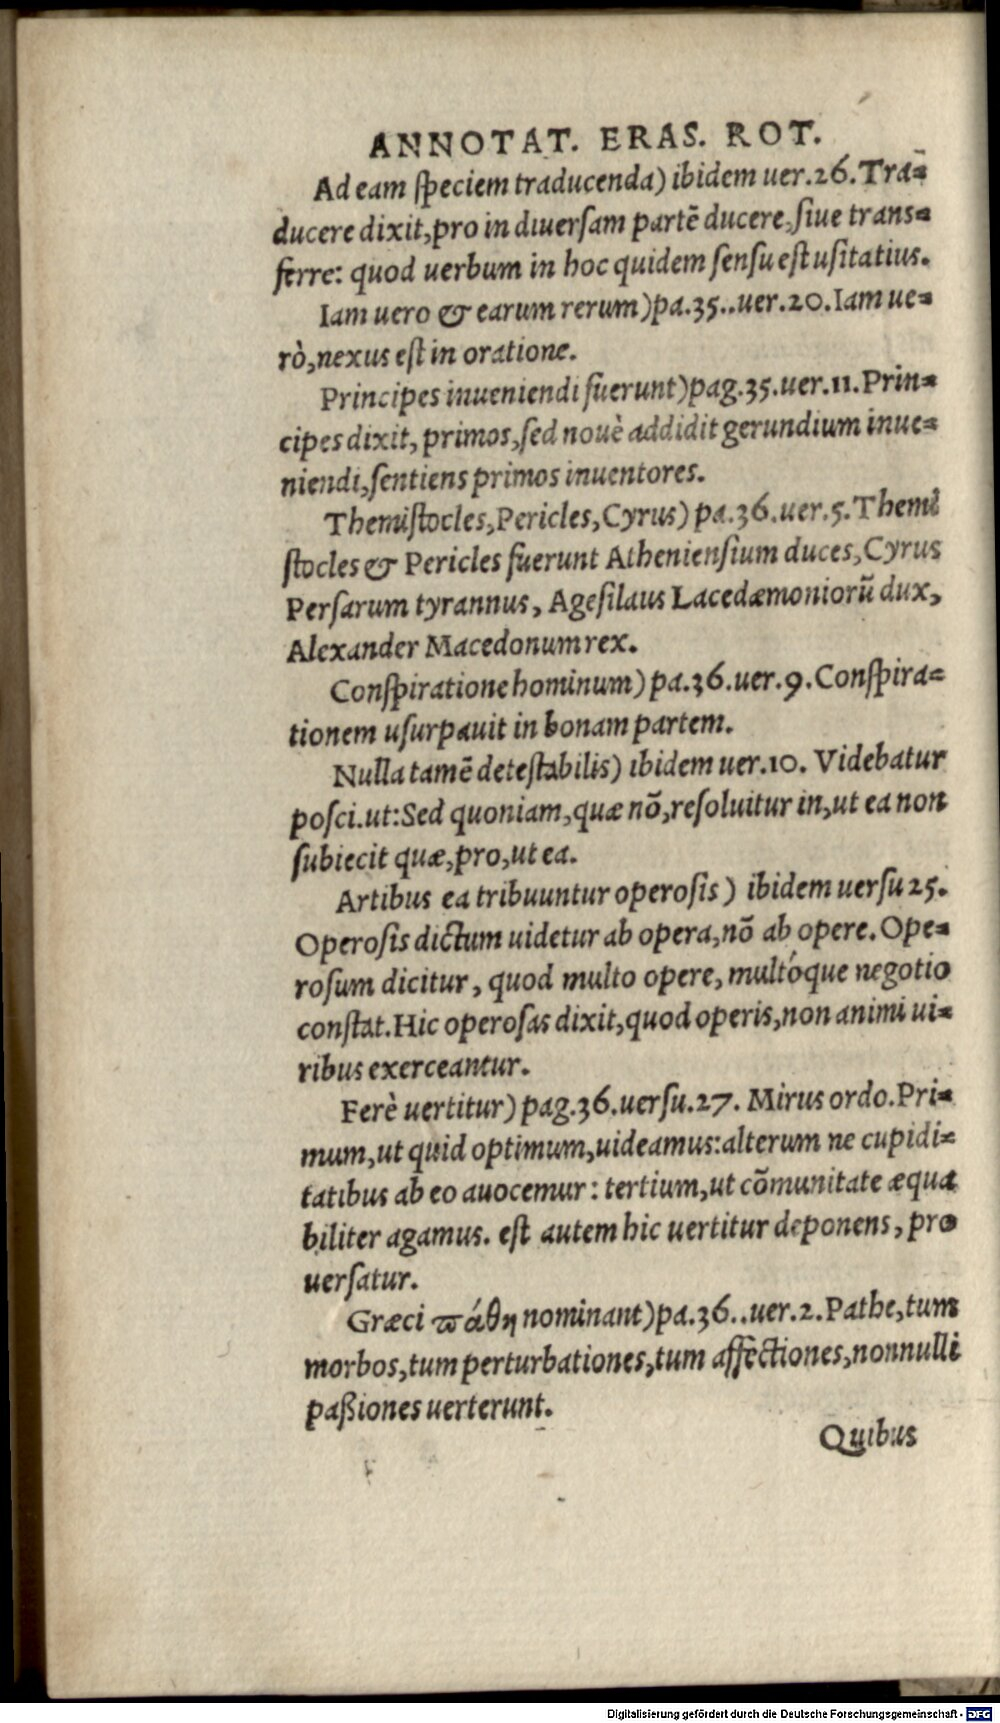 ANNOTAT. ERAS. ROT.
Ad eam ſpeciem traducenda) ibidem uer.26.Tra⸗
ducere dixit,pro in diuerſam partē ducere,ſiue trans⸗
ferre: quod uerbum in hoc quidem ſenſu eſt uſitatius.
Iam uero & earum rerum)pa.35..uer.20.Iam ue⸗
rò,nexus eſt in oratione.
Principes inueniendi fuerunt)pag.35.uer.11.Prin⸗
cipes dixit, primos,ſed nouè addidit gerundium inue⸗
niendi,ſentiens primos inuentores.
Themiſtocles,Pericles,Cyrus) pa.36.uer.5.Themi
ſtocles & Pericles fuerunt Athenienſium duces,Cyrus
Perſarum tyrannus, Ageſilaus Lacedæmoniorũ dux,
Alexander Macedonum rex.
Conſpiratione hominum) pa.36.uer.9.Conſpira⸗
tionem uſurpauit in bonam partem.
Nulla tamē deteſtabilis) ibidem uer.10. Videbatur
poſci.ut:Sed quoniam,quæ nō,reſoluitur in,ut ea non
ſubiecit quæ,pro,ut ea.
Artibus ea tribuuntur operoſis) ibidem uerſu 25.
Operoſis dictum uidetur ab opera,nō ab opere.Ope⸗
roſum dicitur, quod multo opere, multóque negotio
conſtat.Hic operoſas dixit,quod operis,non animi ui⸗
ribus exerceantur.
Ferè uertitur) pag.36.uerſu.27. Mirus ordo.Pri⸗
mum,ut quid optimum,uideamus:alterum ne cupidi⸗
tatibus ab eo auocemur: tertium,ut cōmunitate æqua
biliter agamus. eſt autem hic uertitur deponens, pro
uerſatur.
Græci ϖάθη nominant)pa.36..uer.2.Pathe,tum
morbos,tum perturbationes,tum affectiones,nonnulli
paßiones uerterunt.
Quibus
Digitalisierung gefördert durch die Deutsche Forschungsgemeinschaft - DFG